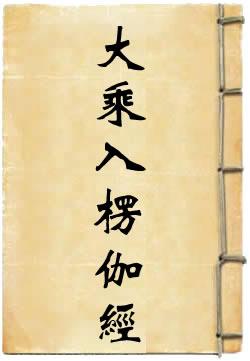 大乘入楞伽經